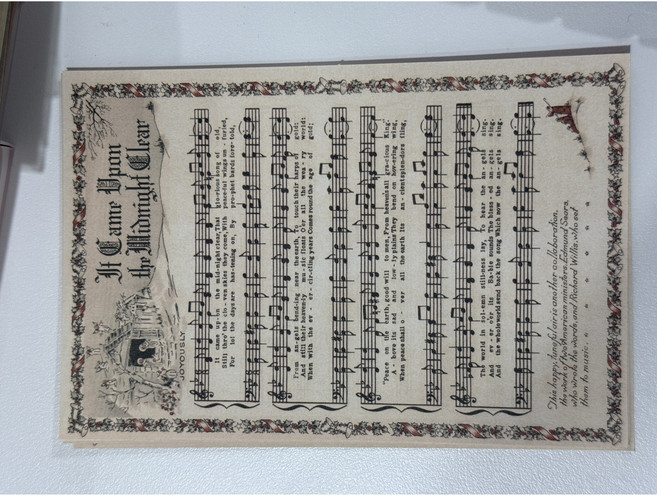 It Came Upon
the Midnight Clear
JOYOUSLY
It came up-on the mid-night clear, That glo-rious song of old,
Still thru the clo-ven skies they come, With peace-ful wings un-furled,
For lo! the days are has-tning on, By pro-phet bards fore-told,
From an-gels bend-ing near the earth, To touch their harps of gold:
And still their heaven-ly mu-sic floats O'er all the wea-ry world:
When with the ev-er-cir-cling years Comes round the age of gold;
"Peace on the earth, good will to men, From heavens all gra-cious King."
A-bove its sad and low-ly plains They bend on hov-ering wing,
When peace shall o-ver all the earth Its an-cient splen-dors fling,
The world in sol-emn still-ness lay, To hear the an-gels sing.
And ev-er o'er its Ba-ble sounds The bless-ed an-gels sing.
And the whole world send back the song Which now the an-gels sing.
This happy, tuneful air is another collaboration,
the work of two American ministers, Edmund Sears,
who wrote the words, and Richard Willis who set
them to music.